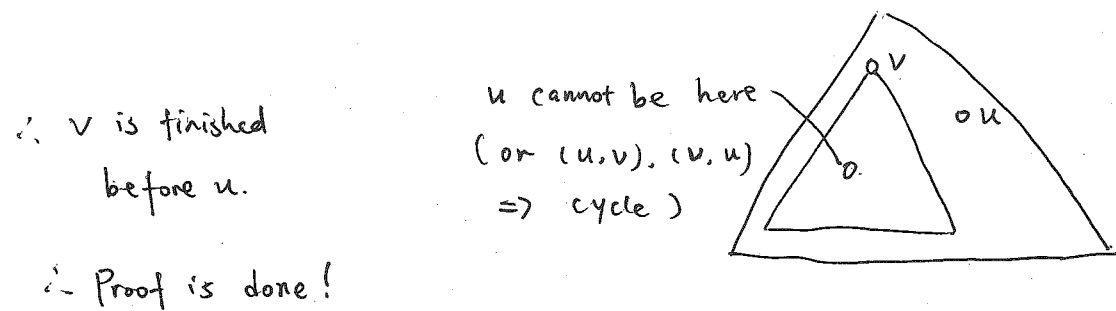 ∴ v is finished
before u.
∴ Proof is done!
u cannot be here
(or (u,v), (v,u)
=> cycle)
v
u